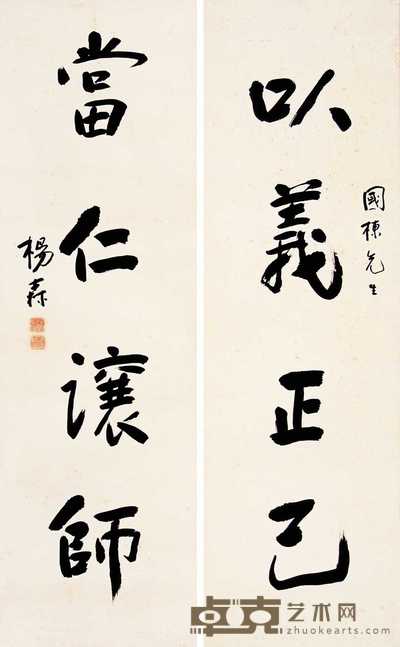 國棟先生
以義正己
當仁讓師
楊森
卓克艺术网
zhuokearts.com